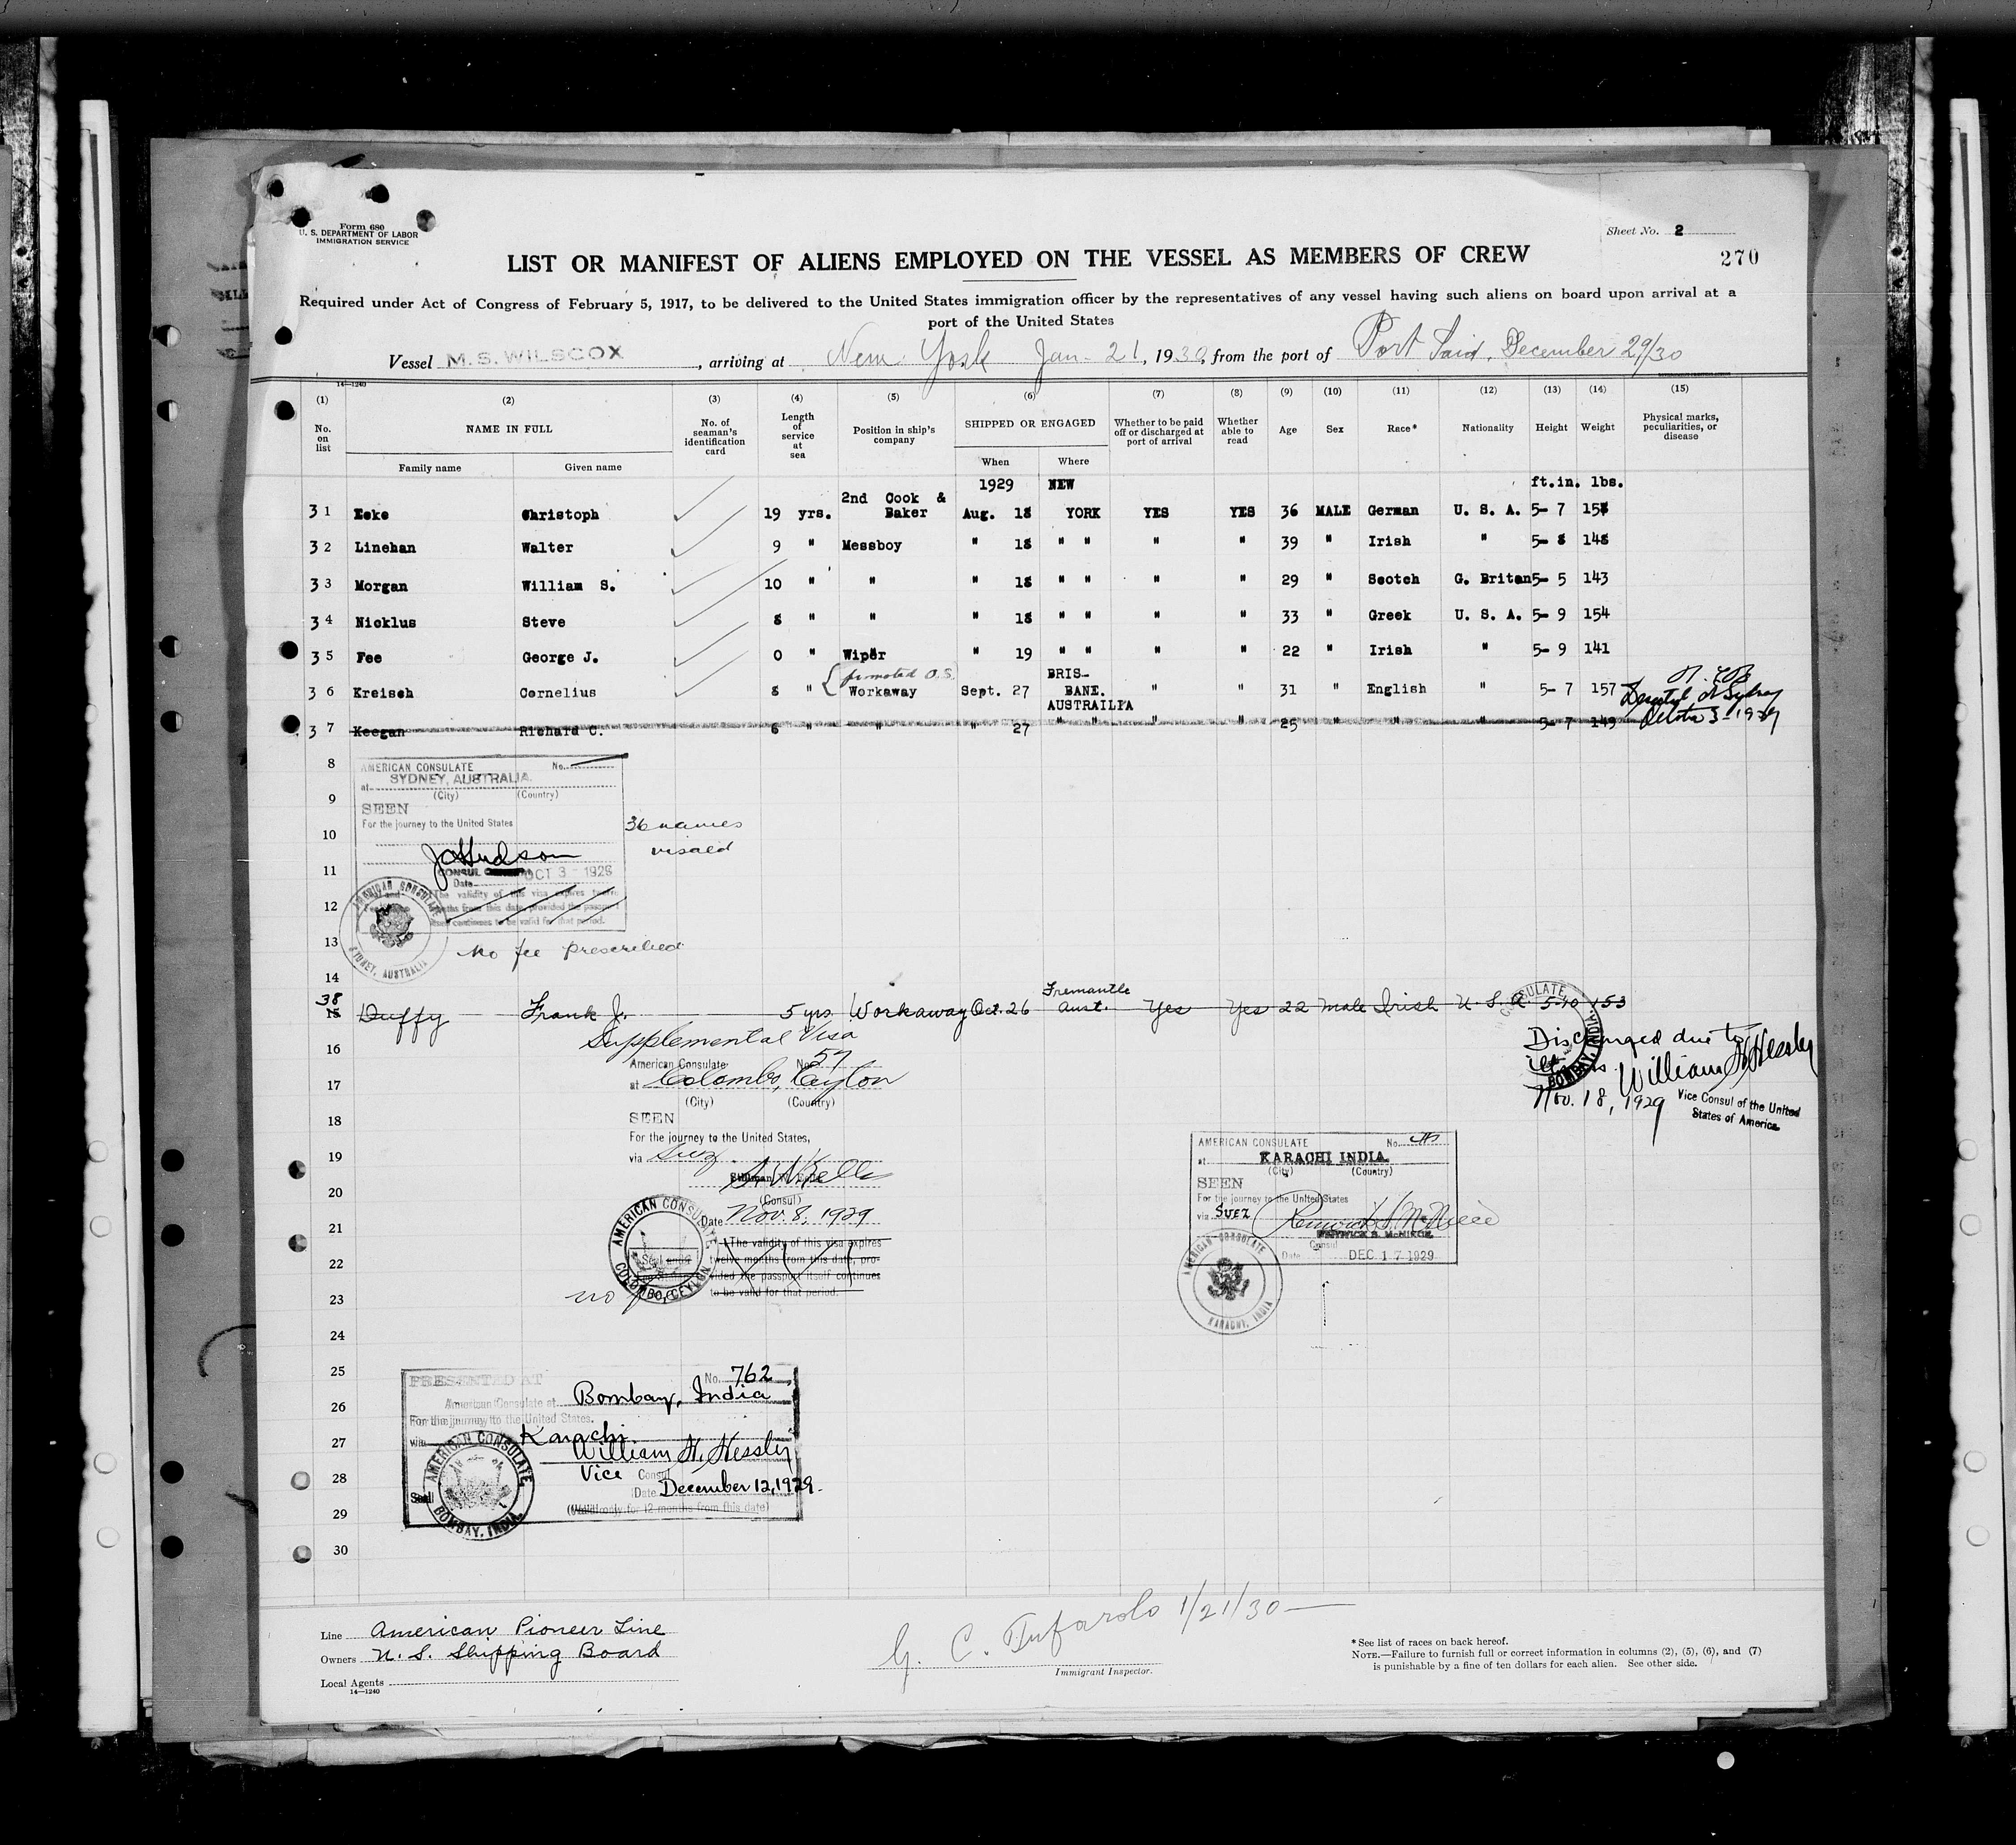 Form 680
U. S. DEPARTMENT OF LABOR
IMMIGRATION SERVICE
Sheet No. 2
270
LIST OR MANIFEST OF ALIENS EMPLOYED ON THE VESSEL AS MEMBERS OF CREW
Required under Act of Congress of February 5, 1917, to be delivered to the United States immigration officer by the representatives of any vessel having such aliens on board upon arrival at a
port of the United States
Vessel M. S. WILSCOX, arriving at New York Jan- 21, 1930, from the port of Port Said, December 29/30
14—1240
(1) (2) (3) (4) (5) (6) (7) (8) (9) (10) (11) (12) (13) (14) (15)
No. on list NAME IN FULL No. of seaman's identification card Length of service at sea Position in ship's company SHIPPED OR ENGAGED Whether to be paid off or discharged at port of arrival Whether able to read Age Sex Race* Nationality Height Weight Physical marks, peculiarities, or disease
Family name Given name When Where
1929 NEW ft.in. lbs.
31 Eske Christoph 19 yrs. 2nd Cook & Baker Aug. 18 YORK YES YES 36 MALE German U. S. A. 5- 7 158
32 Linehan Walter 9 " Messboy " 18 " " " " 39 " Irish " 5- 8 148
33 Morgan William S. 10 " " " 18 " " " " 29 " Scotch G. Britan 5- 5 143
34 Nicklus Steve 8 " " " 18 " " " " 33 " Greek U. S. A. 5- 9 154
35 Fee George J. 0 " Wiper " 19 " " " " 22 " Irish " 5- 9 141
promoted O.S.
36 Kreisch Cornelius 8 " Workaway Sept. 27 BRIS-BANE. AUSTRAILIA " " 31 " English " 5- 7 157
37 Keegan Richard C. 6 " " " 27 " " " " 25 " " " 5- 7 149 Deserted at Sydney October 3-1929
8
AMERICAN CONSULATE No.
at SYDNEY, AUSTRALIA.
(City) (Country)
9
SEEN
For the journey to the United States
10
36 names
visaed
J Hudson
11
CONSUL
Date OCT 3 - 1929
The validity of this visa expires twelve
months from this date, provided the passport
itself continues to be valid for that period.
12
AMERICAN CONSULATE
SYDNEY, AUSTRALIA
13
No fee prescribed
14
38
15 Duffy Frank J. 5 yrs. Workaway Oct. 26 Fremantle Aust. Yes Yes 22 Male Irish U. S. A. 5-10 153
Supplemental Visa
16
American Consulate No 57
at Colombo, Ceylon
17
(City) (Country)
Discharged due to
illness.
Nov. 18, 1929
William H. Hessler
Vice Consul of the United
States of America.
CONSULATE
BOMBAY, INDIA
18
SEEN
For the journey to the United States,
19
via Suez
20
(Consul)
Date Nov. 8, 1929
21
The validity of this visa expires
twelve months from this date, pro-
22
vided the passport itself continues
to be valid for that period.
AMERICAN CONSULATE
COLOMBO, CEYLON
23
no fee
AMERICAN CONSULATE No.
at KARACHI INDIA.
(City) (Country)
SEEN
For the journey to the United States
via SUEZ
RENWICK S. McNIECE
Consul
Date DEC 17 1929
AMERICAN CONSULATE
KARACHI, INDIA
24
25
PRESENTED AT No. 762
American Consulate at Bombay, India
26
For the journey to the United States.
27
via Karachi
William H. Hessler
28
Vice Consul
Date December 12, 1929.
Seal
29
(Valid only for 12 months from this date)
AMERICAN CONSULATE,
BOMBAY, INDIA.
30
Line American Pioneer Line
Owners U. S. Shipping Board
Local Agents
14—1240
G. C. Tufarolo 1/21/30
Immigrant Inspector.
* See list of races on back hereof.
NOTE.—Failure to furnish full or correct information in columns (2), (5), (6), and (7)
is punishable by a fine of ten dollars for each alien. See other side.